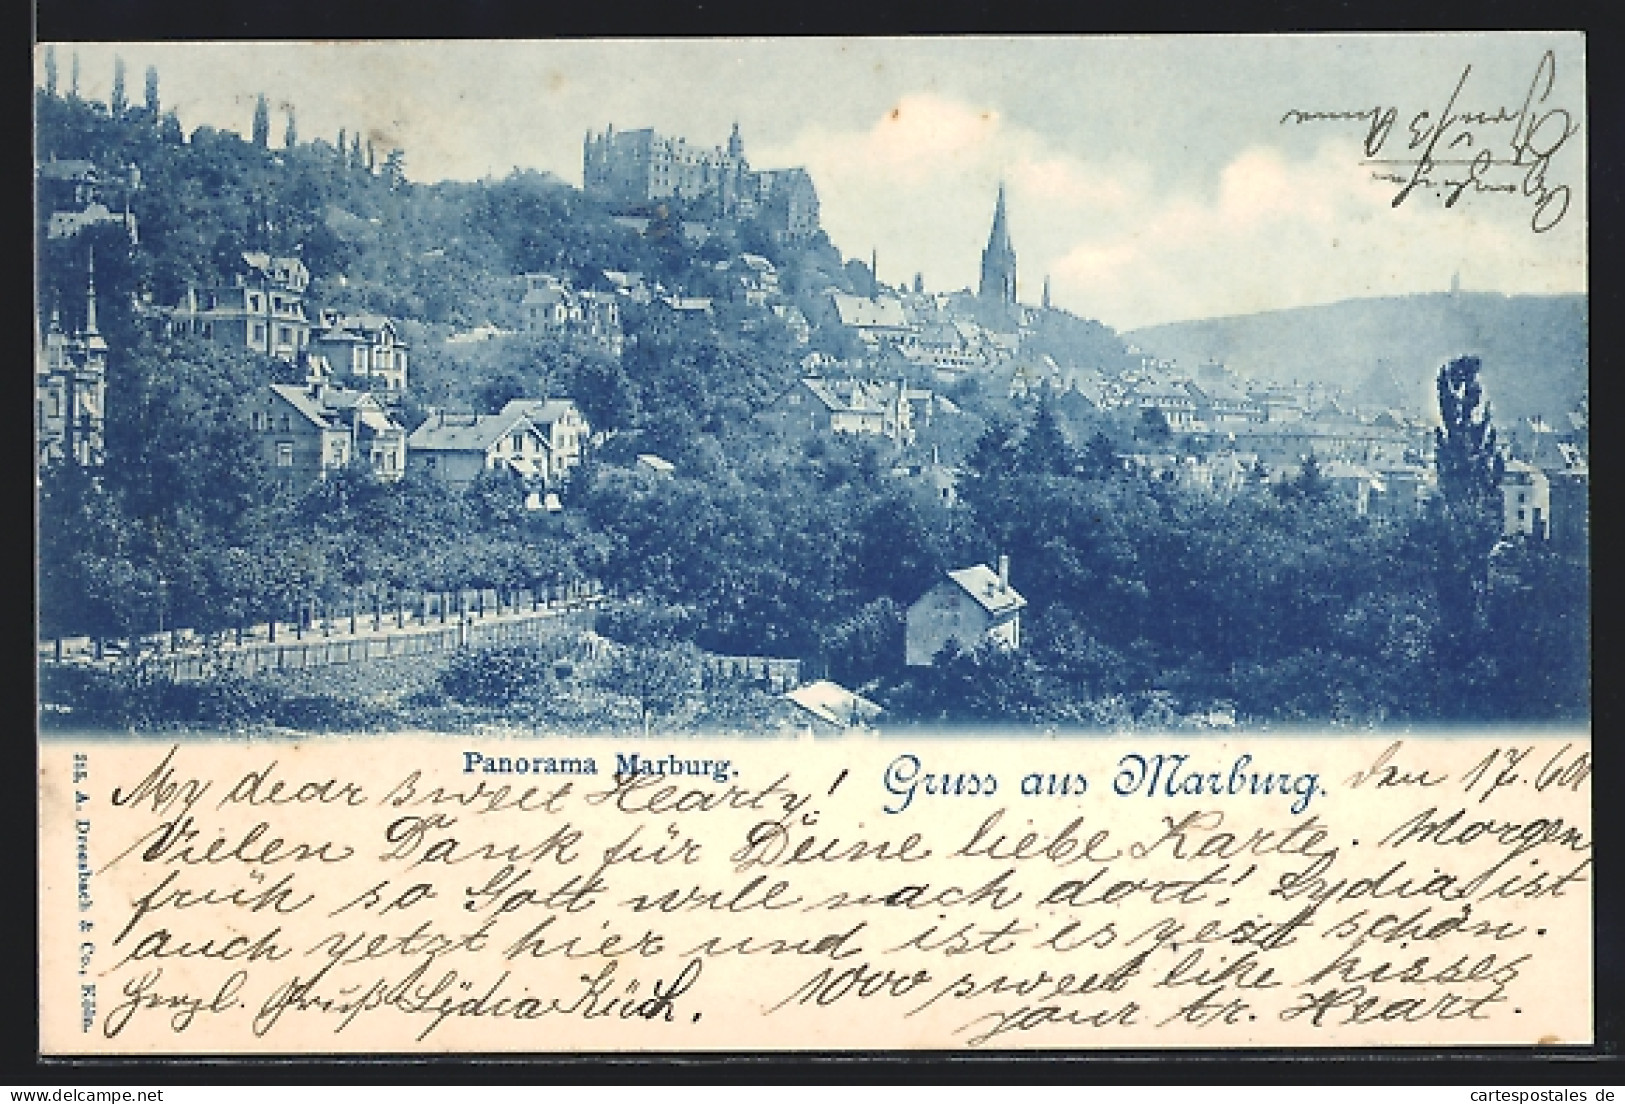 Panorama Marburg.
Gruss aus Marburg.
den 17.
My dear sweet Hearty!
Vielen Dank für Deine liebe Karte. Morgen
früh so Gott will nach dort! Lydia ist
auch jetzt hier und ist es gest schön.
1000 sweet like kisses
Herzl. Gruß Lydia Küch.
your tr. Heart.
215. A. Dressbach & Co., Köln.
cartespostales de